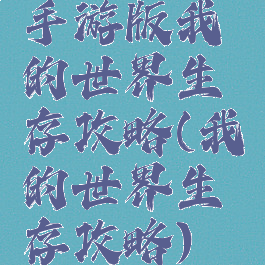 手游版我
的世界生
存攻略(我
的世界生
存攻略)